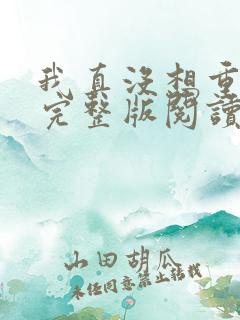 我真没想重
完整版閱讀
山田胡瓜
未经同意禁止转载